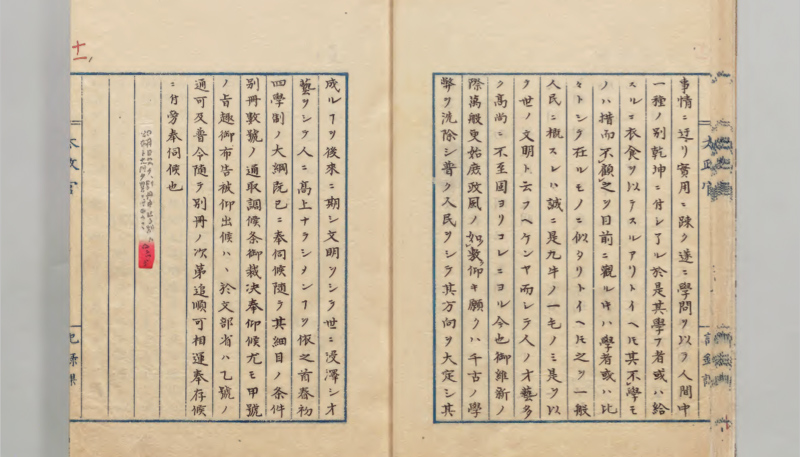 事情ニ迂リ實用ニ踈ク遂ニ學問ヲ以ラ人間中
一種ノ別乾坤ニ付シ了ル於是其學フ者或ハ給
スルニ衣食ヲ以テスルアリトイヘ𪜈其不學モ
ノハ措而不顧之ヲ目前ニ觀ルキハ學者或ハ比
々トシク在ルモノニ似タリトイヘ𪜈之ヲ一般
人民ニ概スレハ誠ニ是九牛ノ一毛ノミ是ヲ以
ラ世ノ文明ト云フヘケンヤ而シラ人ノ才藝多
ク高尚ニ不至固ヨリコレニヨル今也御維新ノ
際萬般更始庶政風ノ如敷仰キ願クハ千古ノ學
弊ヲ洗除シ普ク人民ヲシラ其方向ヲ大定シ其
成ルヿヲ後來ニ期シ文明ヲシラ世ニ浸澤シ才
藝ヲシラ人ニ高上ナラシメンヿヲ依之前春初
四學制ノ大綱既已ニ奉伺候隨ラ其細目ノ条件
別冊數號ノ通取調候条御裁决奉仰候尤モ甲號
ノ旨趣御布告被仰出候ハヽ於文部省ハ乙號ノ
通可及普令随ラ別冊ノ次第追順可相運奉存候
ニ付旁奉伺候也
十一
太政官
記録課